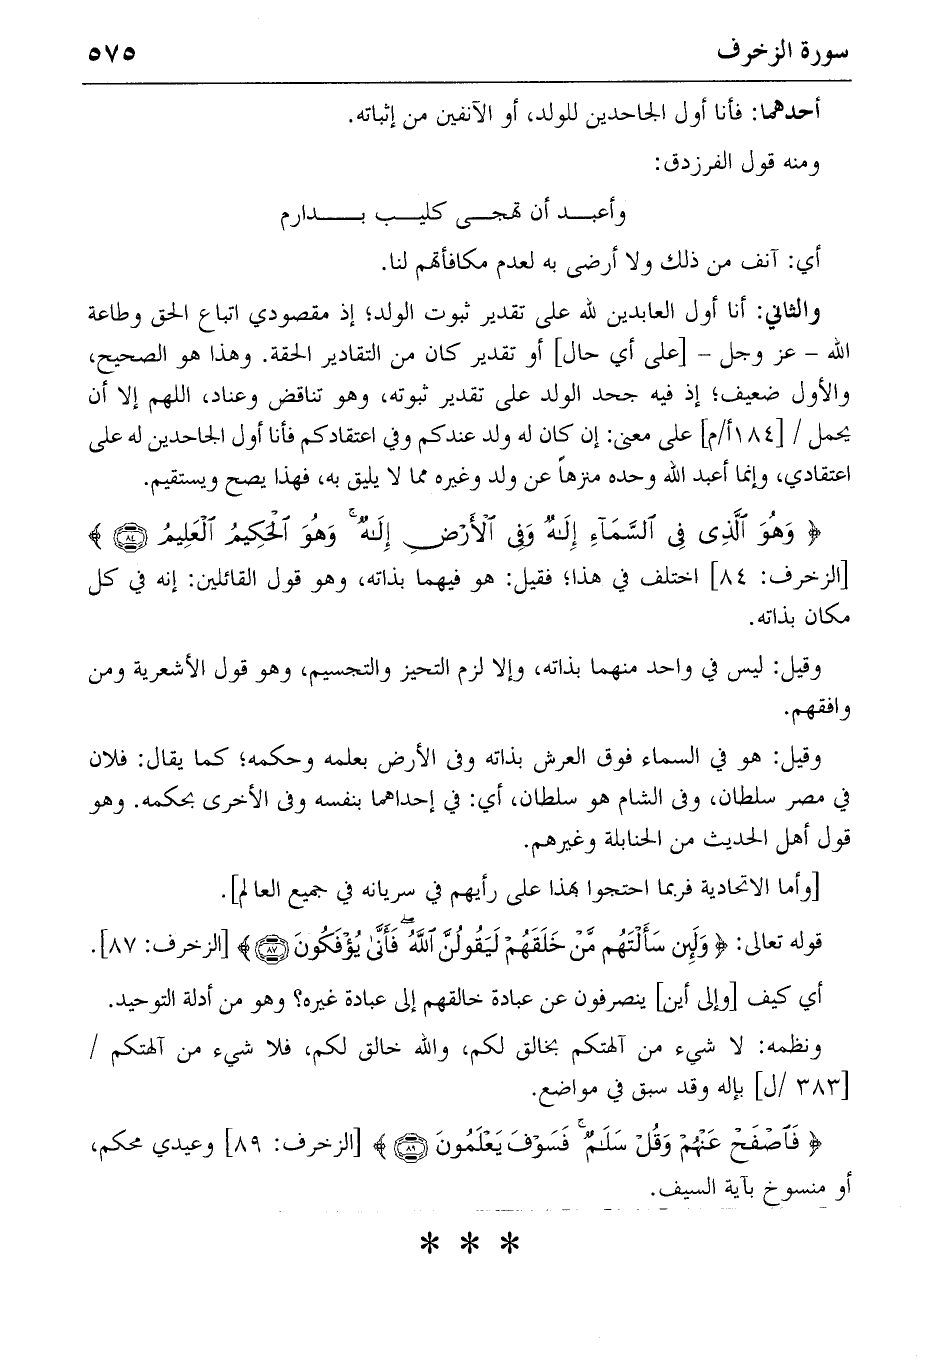 سورة الزخرف ٥٧٥
أحدهما: فأنا أول الجاحدين للولد، أو الآنفين من إثباته.
ومنه قول الفرزدق:
وأعبـــد أن تهجـــى كليـــب بـــدارم
أي: آنف من ذلك ولا أرضى به لعدم مكافأتهم لنا.
والثاني: أنا أول العابدين لله على تقدير ثبوت الولد؛ إذ مقصودي اتباع الحق وطاعة
الله – عز وجل – [على أي حال] أو تقدير كان من التقادير الحقة. وهذا هو الصحيح،
والأول ضعيف؛ إذ فيه جحد الولد على تقدير ثبوته، وهو تناقض وعناد، اللهم إلا أن
يحمل / [١٨٤أ/م] على معنى: إن كان له ولد عندكم وفي اعتقادكم فأنا أول الجاحدين له على
اعتقادي، وإنما أعبد الله وحده منزهاً عن ولد وغيره مما لا يليق به، فهذا يصح ويستقيم.
﴿ وَهُوَ ٱلَّذِى فِى ٱلسَّمَآءِ إِلَـٰهٌ وَفِى ٱلْأَرْضِ إِلَـٰهٌ ۚ وَهُوَ ٱلْحَكِيمُ ٱلْعَلِيمُ ٨٤ ﴾
[الزخرف: ٨٤] اختلف في هذا؛ فقيل: هو فيهما بذاته، وهو قول القائلين: إنه في كل
مكان بذاته.
وقيل: ليس في واحد منهما بذاته، وإلا لزم التحيز والتجسيم، وهو قول الأشعرية ومن
وافقهم.
وقيل: هو في السماء فوق العرش بذاته وفى الأرض بعلمه وحكمه؛ كما يقال: فلان
في مصر سلطان، وفى الشام هو سلطان، أي: في إحداهما بنفسه وفى الأخرى بحكمه. وهو
قول أهل الحديث من الحنابلة وغيرهم.
[وأما الاتحادية فربما احتجوا بهذا على رأيهم في سريانه في جميع العالم].
قوله تعالى: ﴿ وَلَئِن سَأَلْتَهُم مَّنْ خَلَقَهُمْ لَيَقُولُنَّ ٱللَّهُ ۖ فَأَنَّىٰ يُؤْفَكُونَ ٨٧ ﴾ [الزخرف: ٨٧].
أي كيف [وإلى أين] ينصرفون عن عبادة خالقهم إلى عبادة غيره؟ وهو من أدلة التوحيد.
ونظمه: لا شيء من آلهتكم بخالق لكم، والله خالق لكم، فلا شيء من آلهتكم /
[٣٨٣ /ل] بإله وقد سبق في مواضع.
﴿ فَٱصْفَحْ عَنْهُمْ وَقُلْ سَلَـٰمٌ ۚ فَسَوْفَ يَعْلَمُونَ ٨٩ ﴾ [الزخرف: ٨٩] وعيدي محكم،
أو منسوخ بآية السيف.
* * *